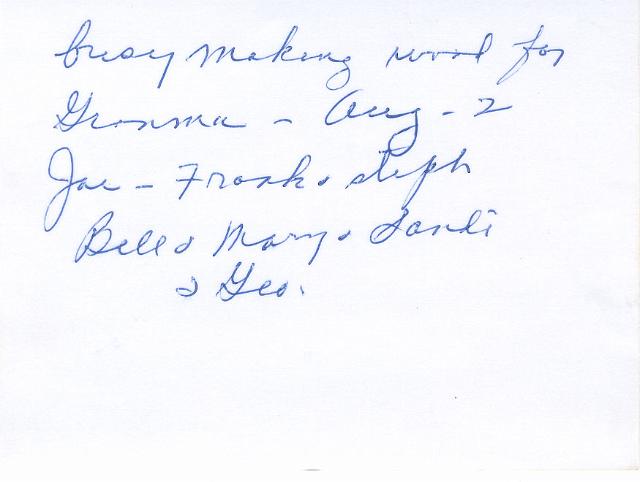 busy making wood for
Granma - Aug - 2
Joe - Frank & Steph
Bill & Mary & Sandi
& Geo.